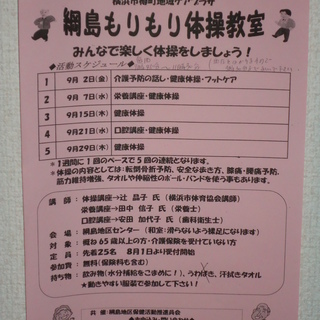 横浜市樽町地域ケアプラザ
綱島もりもり体操教室
みんなで楽しく体操をしましょう！
◆活動スケジュール◆
1 9月 2日(金) 介護予防の話し・健康体操・フットケア
2 9月 7日(水) 栄養講座・健康体操
3 9月15日(木) 健康体操
4 9月21日(水) 口腔講座・健康体操
5 9月29日(木) 健康体操
＊1週間に1回のペースで5回の連続となります。
＊体操の内容としては：転倒骨折予防、安全な歩き方、膝痛・腰痛予防、
筋力維持増強、タオルや伸縮性のボール・バンドを使う事もあります。
講 師：体操講座→辻 晶子 氏（横浜市体育協会講師）
栄養講座→田中 信子 氏（栄養士）
口腔講座→安田 加代子 氏（歯科衛生士）
会 場：綱島地区センター（和室：滑らないよう裸足になります）
対 象：概ね65歳以上の方・介護保険を受けていない方
定 員：先着25名 8月1日より受付開始
参加費：無料（保険料も含む）
持ち物：飲み物（水分補給をこまめに！）、うわばき、汗拭きタオル
★動きやすい服装で参加して下さい！
共 催：綱島地区保健活動推進員会